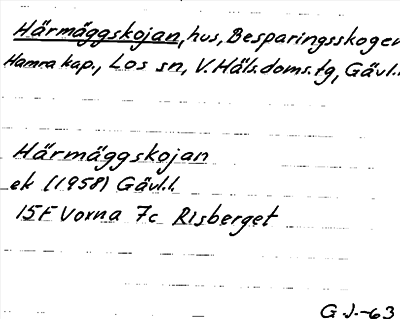 Härmäggskojan, hus, Besparingsskogen
Hamra kap., Los sn, V. Häls. doms. tg, Gävl.
Härmäggskojan
ek (1958) Gävl.l.
15F Voxna 7c Risberget
G.J.-63